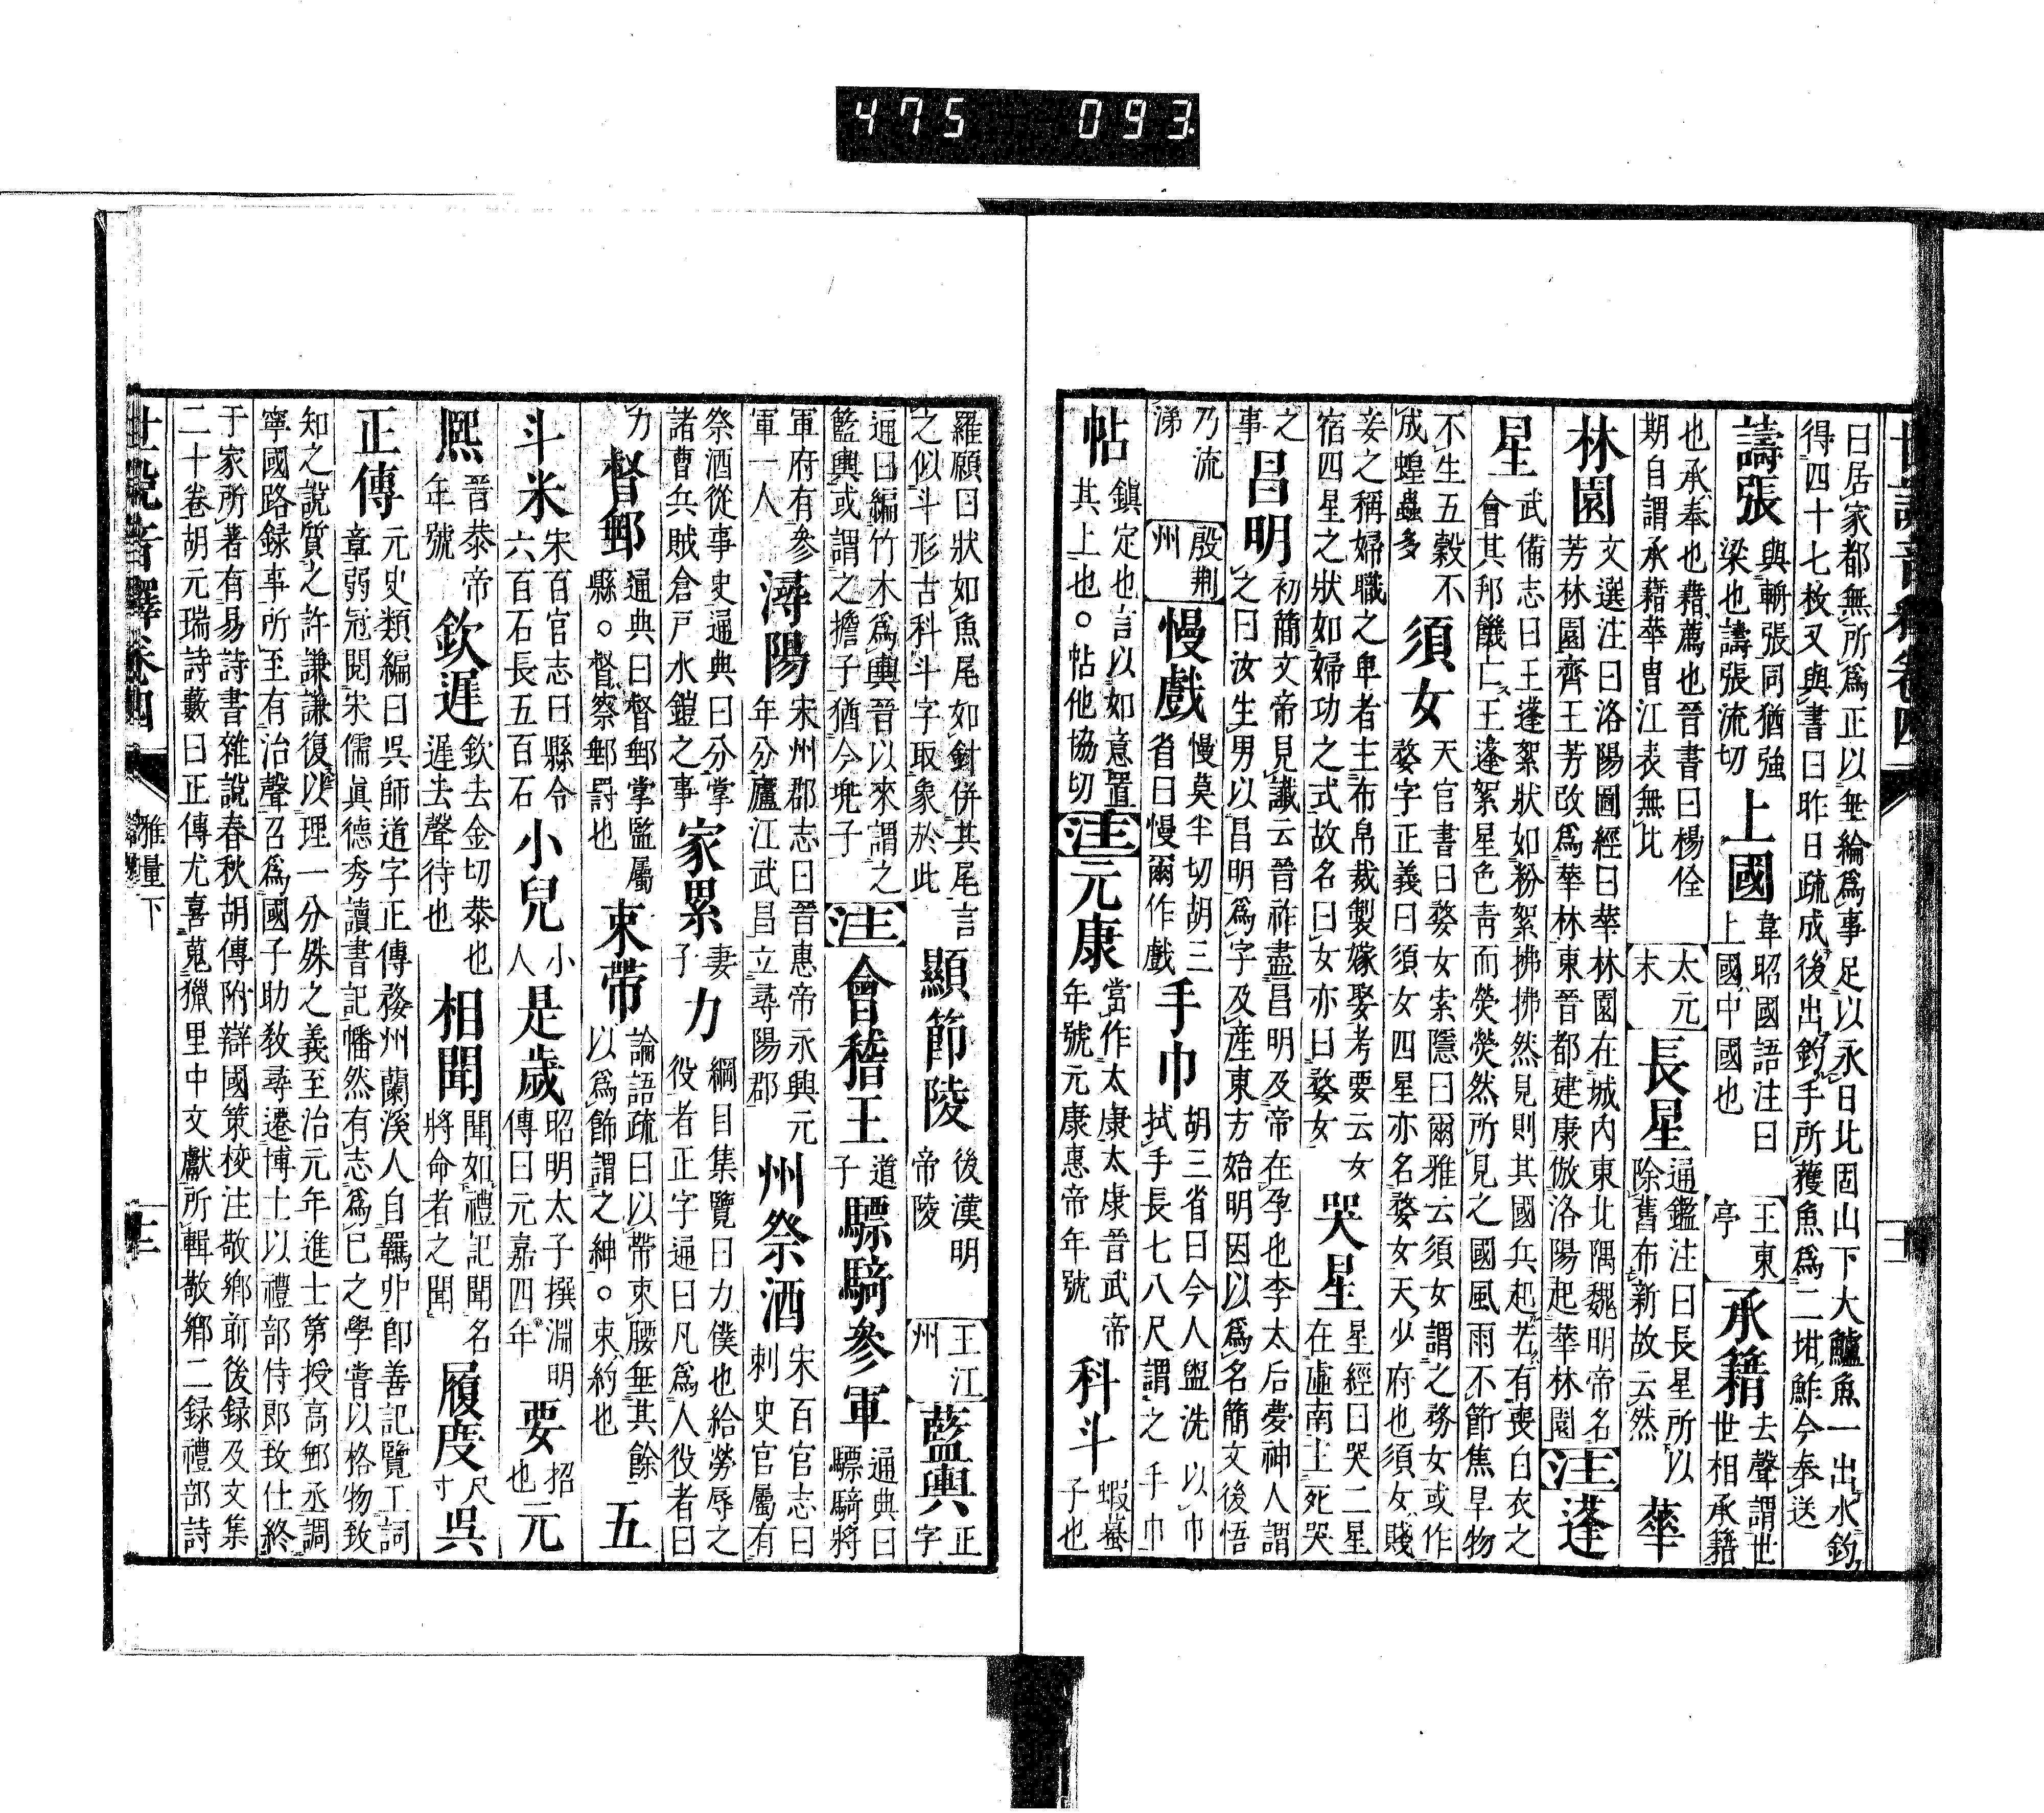 世說音釋卷四
曰居家都無所爲正以垂綸爲事足以永日北固山下大鱸魚一出水釣
得四十七枚又與書曰昨日疏成後出釣手所獲魚爲二坩鮓今奉送
譸張 與輈張同猶強梁也譸張流切 上國 韋昭國語注曰上國中國也 王東亭 承籍 去聲謂世世相承籍
也承奉也藉薦也晉書曰楊佺期自謂承藉華冑江表無比 太元末 長星 通鑑注曰長星所以除舊布新故云然 華
林園 文選注曰洛陽圖經曰華林園在城內東北隅魏明帝名芳林園齊王芳改爲華林東晉都建康倣洛陽起華林園 注 蓬
星 武備志曰王蓬絮狀如粉絮拂拂然見則其國兵起若有喪白衣之會其邦饑亡王蓬絮星色青而熒熒然所見之國風雨不節焦旱物
不生五穀不成蝗蟲多 須女 天官書曰婺女索隱曰爾雅云須女謂之務女或作婺字正義曰須女四星亦名婺女天少府也須女賤
妾之稱婦職之卑者主布帛裁製嫁娶考要云女宿四星之狀如婦功之式故名曰女亦曰婺女 哭星 星經曰哭二星在虛南主死哭
之事 昌明 初簡文帝見讖云晉祚盡昌明及帝在孕也李太后夢神人謂之曰汝生男以昌明爲字及產東方始明因以爲名簡文後悟
乃流涕 殷荆州 慢戲 慢莫半切胡三省曰慢爾作戲 手巾 胡三省曰今人盥洗以巾拭手長七八尺謂之手巾
帖 鎮定也言以如意置其上也。帖他協切 注 元康 當作太康太康晉武帝年號元康惠帝年號 科斗 蝦蟇子也
羅願曰狀如魚尾如針併其尾言之似斗形古科斗字取象於此 顯節陵 後漢明帝陵 王江州 藍輿 正字
通曰編竹木爲輿晉以來謂之籃輿或謂之擔子猶今兠子 注 會稽王 道子 驃騎參軍 通典曰驃騎將
軍府有參軍一人 潯陽 宋州郡志曰晉惠帝永興元年分廬江武昌立尋陽郡 州祭酒 宋百官志曰刺史官屬有
祭酒從事史通典曰分掌諸曹兵賊倉戸水鎧之事 家累 妻子 力 綱目集覽曰力僕也給勞辱之役者正字通曰凡爲人役者曰
力 督郵 通典曰督郵掌監屬縣。督察郵罸也 束帶 論語疏曰以帶束腰垂其餘以爲飾謂之紳。束約也 五
斗米 宋百官志曰縣令六百石長五百石 小兒 小人 是歲 昭明太子撰淵明傳曰元嘉四年 要 招也 元
熙 晉恭帝年號 欽遲 欽去金切恭也遲去聲待也 相聞 聞如禮記聞名將命者之聞 履度 尺寸 吳
正傳 元史類編曰吳師道字正傳婺州蘭溪人自羈丱卽善記覽工詞章弱冠閱宋儒眞德秀讀書記幡然有志爲已之學嘗以格物致
知之說質之許謙謙復以理一分殊之義至治元年進士第授高郵丞調寧國路録事所至有治聲召爲國子助教尋遷博士以禮部侍郎致仕終
于家所著有易詩書雜說春秋胡傳附辯國策校注敬鄉前後録及文集二十卷胡元瑞詩藪曰正傳尤喜蒐獵里中文獻所輯敬鄉二録禮部詩
世說音釋卷四 雅量下 十三
475 093